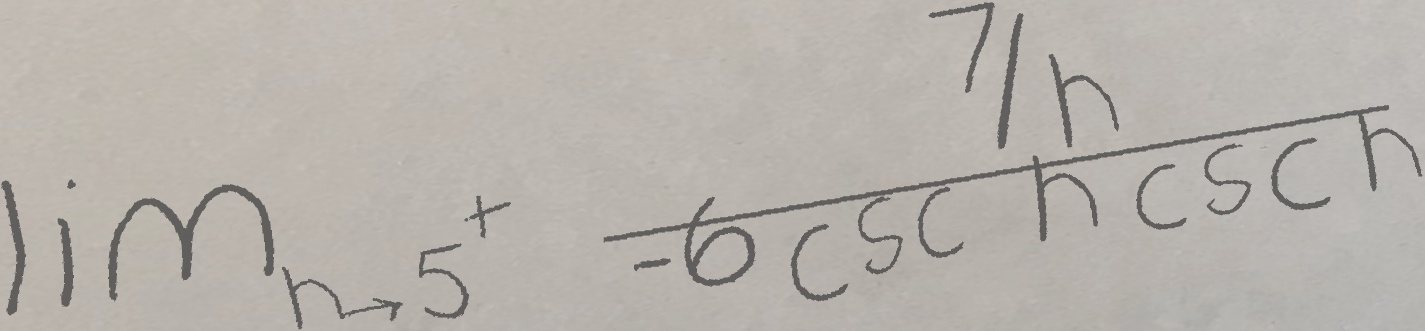 \lim_{h \to 5^+} \frac{7/h}{-6 \csc h \csc h}